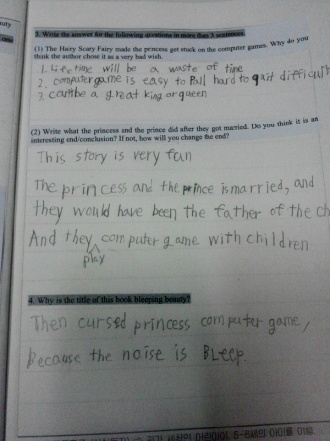 3. Write the answer for the following questions in more than 3 sentences.
(1) The Hairy Scary Fairy made the princess get stuck on the computer games. Why do you
think the author chose it as a very bad wish.
1. Life time will be a waste of time
2. computer game is easy to Pull hard to quit difficult
3. can't be a great king or queen
(2) Write what the princess and the prince did after they got married. Do you think it is an
interesting end/conclusion? If not, how will you change the end?
This story is very fun
The princess and the prince is married, and
they would have been the father of the ch
And they play computer game with children
4. Why is the title of this book bleeping beauty?
Then cursed princess computer game,
Because the noise is BLeep.